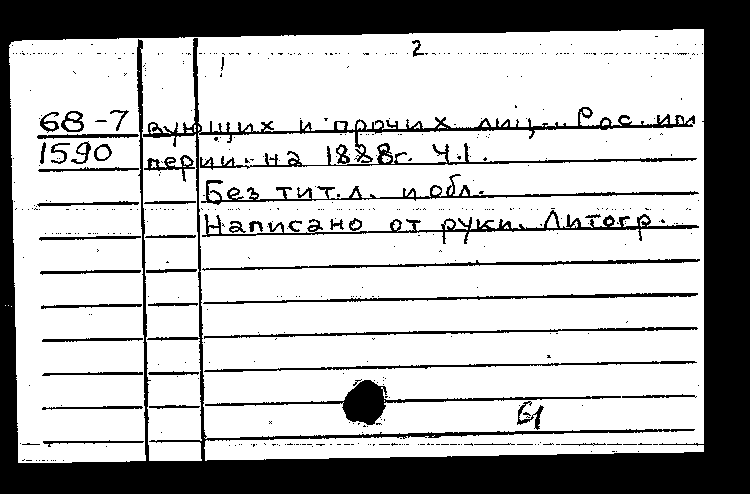 2
68-7 вующих и прочих лиц... Рос. им
1590 перии. на 1888г. Ч.1.
Без тит.л. и обл.
Написано от руки. Литогр.